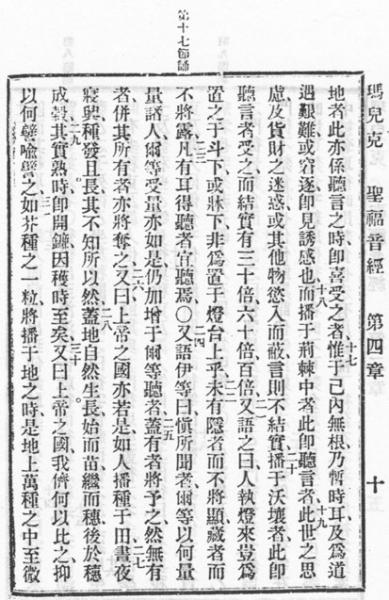 瑪兒克 聖福音經 第四章 十
第十七節誦
十七
地者此亦係聽言之時即喜受之者惟于己內無根乃暫時耳及爲道
十八 十九
遇艱難或窘逐即見誘感也而播于荊棘中者此即聽言者此世之思
二十
慮及貨財之迷惑或其他物慾入而蔽言則不結實播于沃壤者此即
二一
聽言者受之而結實有三十倍六十倍百倍又語之曰人執燈來豈爲
二二
置之于斗下或牀下非爲置于燈台上乎未有隱者而不將顯藏者而
二三 二四
不將露凡有耳得聽者宜聽焉〇又語伊等曰愼所聞者爾等以何量
二五
量諸人爾等受量亦如是仍加增于爾等聽者蓋有者將予之然無有
二六 二七
者併其所有者亦將奪之又曰上帝之國亦若是如人播種于田晝夜
二八
寢興種發且長其不知所以然蓋地自然生長始而苗繼而穗後於穗
二九 三十
成穀其實熟時即開鐮因穫時至矣又曰上帝之國我儕何以比之抑
三一
以何譬喻譬之如芥種之一粒將播于地之時是地上萬種之中至微